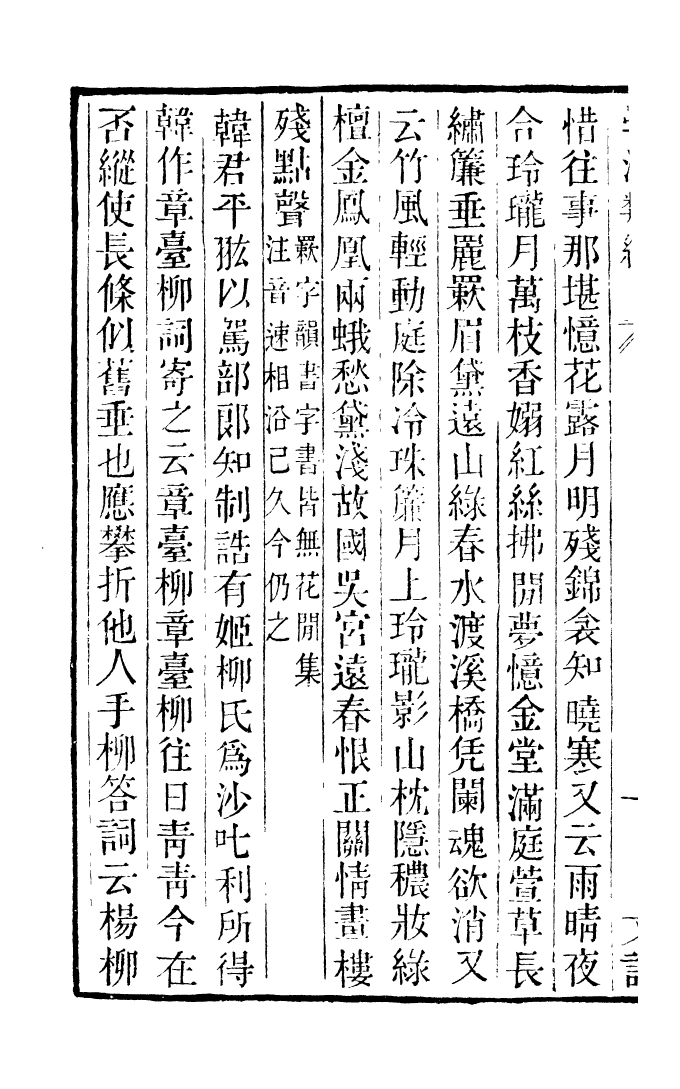 惜往事那堪憶花露月明殘錦衾知曉寒又云雨晴夜
合玲瓏月萬枝香嫋紅絲拂閒夢憶金堂滿庭萱草長
繡簾垂麗䍁眉黛遠山綠春水渡溪橋凭闌魂欲消又
云竹風輕動庭除冷珠簾月上玲瓏影山枕隱穠妝綠
檀金鳳凰兩蛾愁黛淺故國吳宮遠春恨正關情畫樓
殘點聲䍁字韻書字書皆無花閒集
注音速相沿已久今仍之
韓君平翃以駕部郞知制誥有姬柳氏爲沙吒利所得
韓作章臺柳詞寄之云章臺柳章臺柳往日靑靑今在
否縱使長條似舊垂也應攀折他人手柳答詞云楊柳